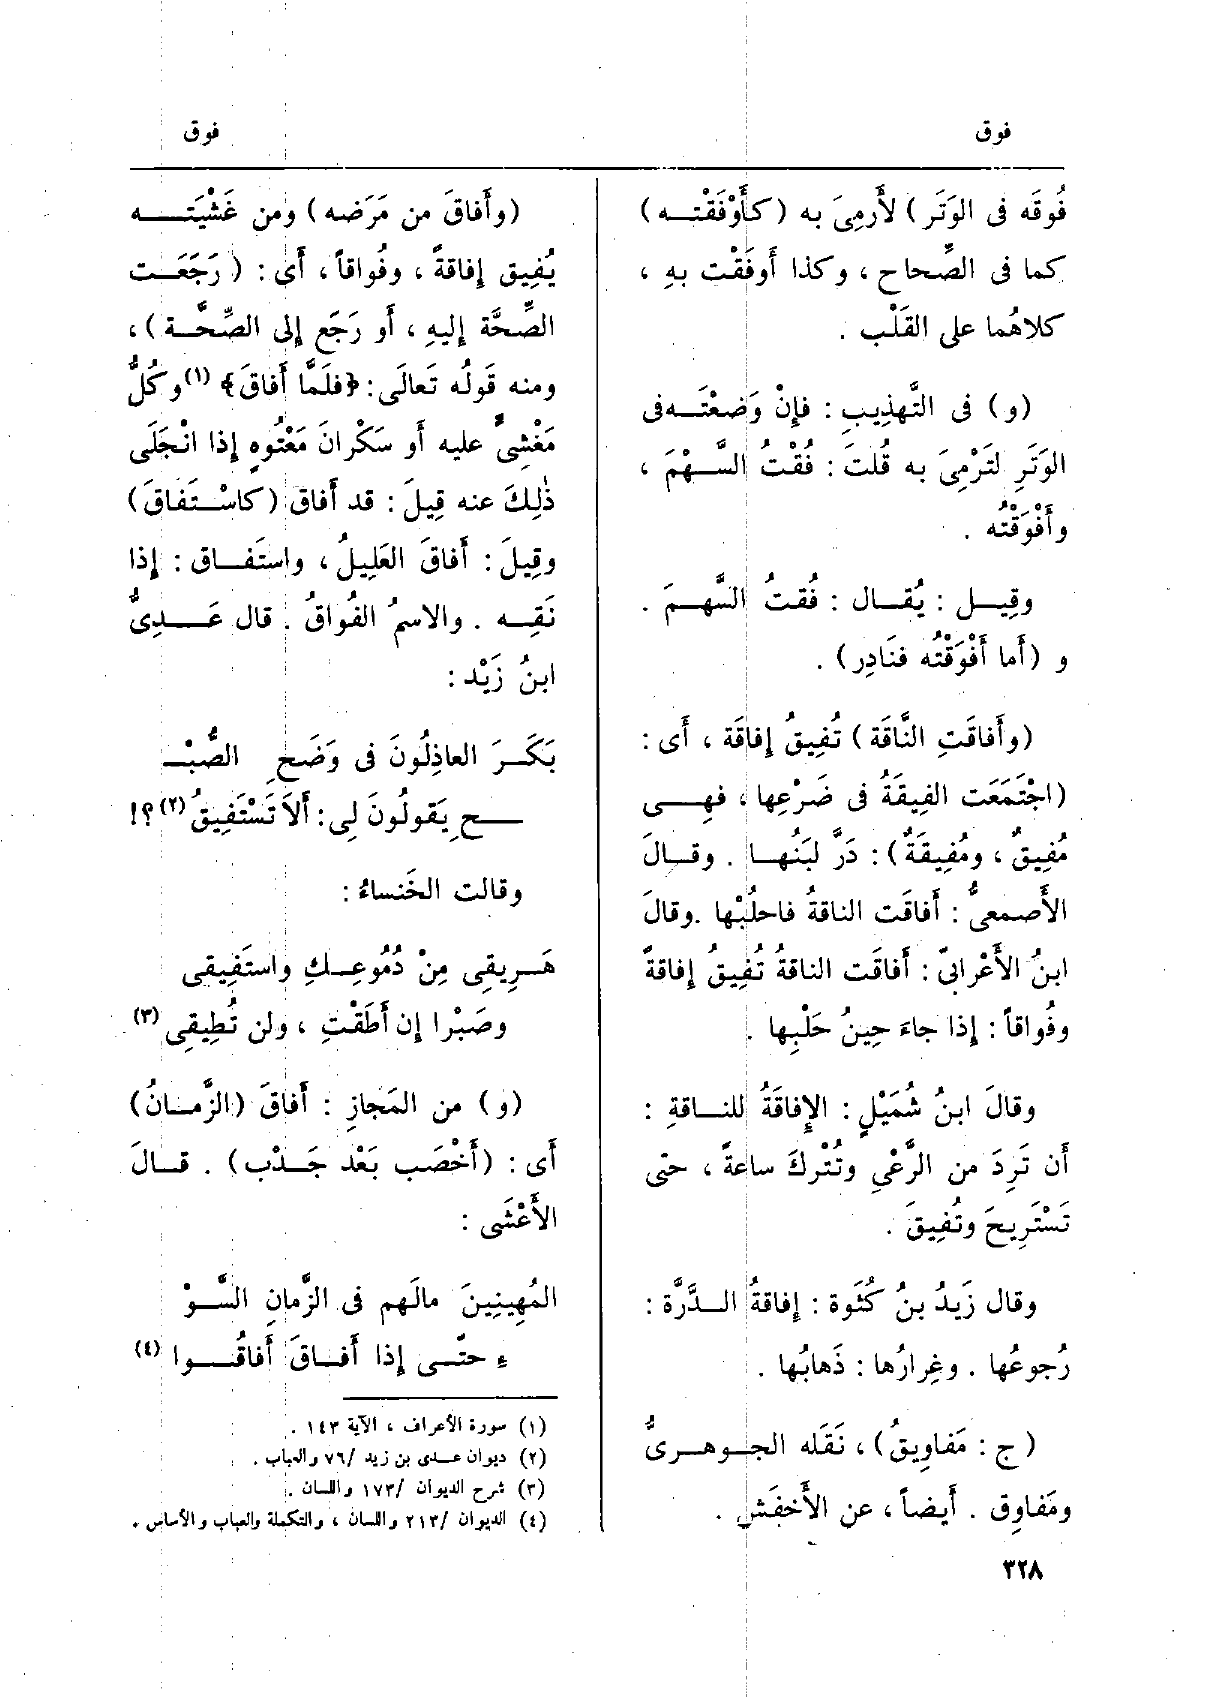 فوق
فوق
فُوقَه فى الوَتَر) لأَرمِىَ به (كأَوْفَقْتــه)
كما فى الصِّحاح ، وكذا أَوفَقْت بهِ ،
كلاهُما على القَلْب .
(و) فى التَّهذِيبِ : فإِنْ وَضعْتَــه فى
الوَتَرِ لتَرْمِىَ به قُلتَ : فُقْتُ السَّــهْمَ ،
وأَفْوَقْتُه .
وقِيــل : يُقــال : فُقتُ السَّهــمَ .
و (أَما أَفْوَقْتُه فنَادِر) .
(وأَفاقَتِ النَّاقَة) تُفِيقُ إِفاقَة ، أَى :
(اجْتَمَعَت الفِيقَةُ فى ضَرْعِها ، فهِــى
مُفِيقٌ ، ومُفِيقَةٌ) : دَرَّ لبَنُهــا . وقــالَ
الأَصمعىُّ : أَفاقَت الناقةُ فاحلُبْها .وقالَ
ابنُ الأَعْرابىّ : أَفاقَت الناقةُ تُفِيقُ إِفاقةً
وفُواقاً : إِذا جاءَ حِينُ حَلْبِها .
وقالَ ابنُ شُمَيْلٍ : الإِفاقَةُ للنــاقةِ :
أَن تَرِدَ من الرَّعْىِ وتُتْركَ ساعةً ، حتى
تَسْتَرِيحَ وتُفِيقَ .
وقال زَيدُ بنُ كُثَوة : إِفاقةُ الــدَّرَّة :
رُجوعُها . وغِرارُها : ذَهابُها .
(ج : مَفاوِيقُ) ، نَقَله الجــوهــرىُّ
ومَفاوِق . أَيضاً ، عن الأَخفَش .
(وأَفاقَ من مَرَضه) ومن غَشْيَتِــه
يُفِيق إِفاقةً ، وفُواقاً ، أَى : (رَجَعَــت
الصِّحَّة إِليهِ ، أَو رَجَع إِلى الصِّحَّــة) ،
ومنه قَولُه تَعالَى : {فلَمَّا أَفاقَ} (١) وكُلُّ
مَغْشِىٍّ عليه أَو سَكْرانَ مَعْتُوهٍ إِذا انْجَلَى
ذٰلِكَ عنه قِيلَ : قد أَفاق (كاسْــتَفَاقَ)
وقِيلَ : أَفاقَ العَلِيلُ ، واستَفــاق : إِذا
نَقِــه . والاسمُ الفُواقُ . قال عَــدِىُّ
ابنُ زَيْد :
بَكَــرَ العاذِلُونَ فى وَضَحِ الصُّبْــ
ــحِ يَقولُونَ لِى : أَلَا تَسْتَفِيقُ (٢) ؟!
وقالت الخَنساءُ :
هَــرِيقِى مِنْ دُمُوعِــكِ واستَفِيقِى
وصَبْرا إِن أَطَقْتِ ، ولن تُطِيقِى (٣)
(و) من المَجازِ : أَفاقَ (الزَّمــانُ)
أَى : (أَخْصَب بَعْد جَــدْب) . قــالَ
الأَعْشَى :
المُهِينِينَ مالَهم فى الزَّمانِ السَّــوْ
ءِ حتّــى إِذا أَفــاقَ أَفاقُــوا (٤)
(١) سورة الأعراف ، الآية ١٤٣ .
(٢) ديوان عــدى بن زيد /٧٦ والعباب .
(٣) شرح الديوان /١٧٣ واللسان .
(٤) الديوان /٢١٣ واللسان ، والتكملة والعباب والأساس .
٣٢٨